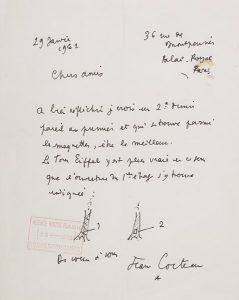 29 Janvier
1962
36 rue de
Montpensier
Palais-Royal
Paris
Chers amis
A bien réfléchir je crois un 2e dessin
pareil au premier et qui se trouve parmi
les maquettes, être le meilleur.
La Tour Eiffel y est plus vraie en ce sens
que l'ouverture du 1er étage s'y trouve
indiquée
1
2
De cœur à vous
Jean Cocteau
*